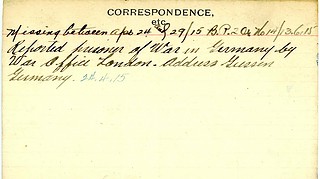 CORRESPONDENCE,
etc.
Missing between Apr 24 & 29/15 B.P.2
Reported prisoner of War in Germany by
War Office London. Address Giessen
Germany. 24.4.15